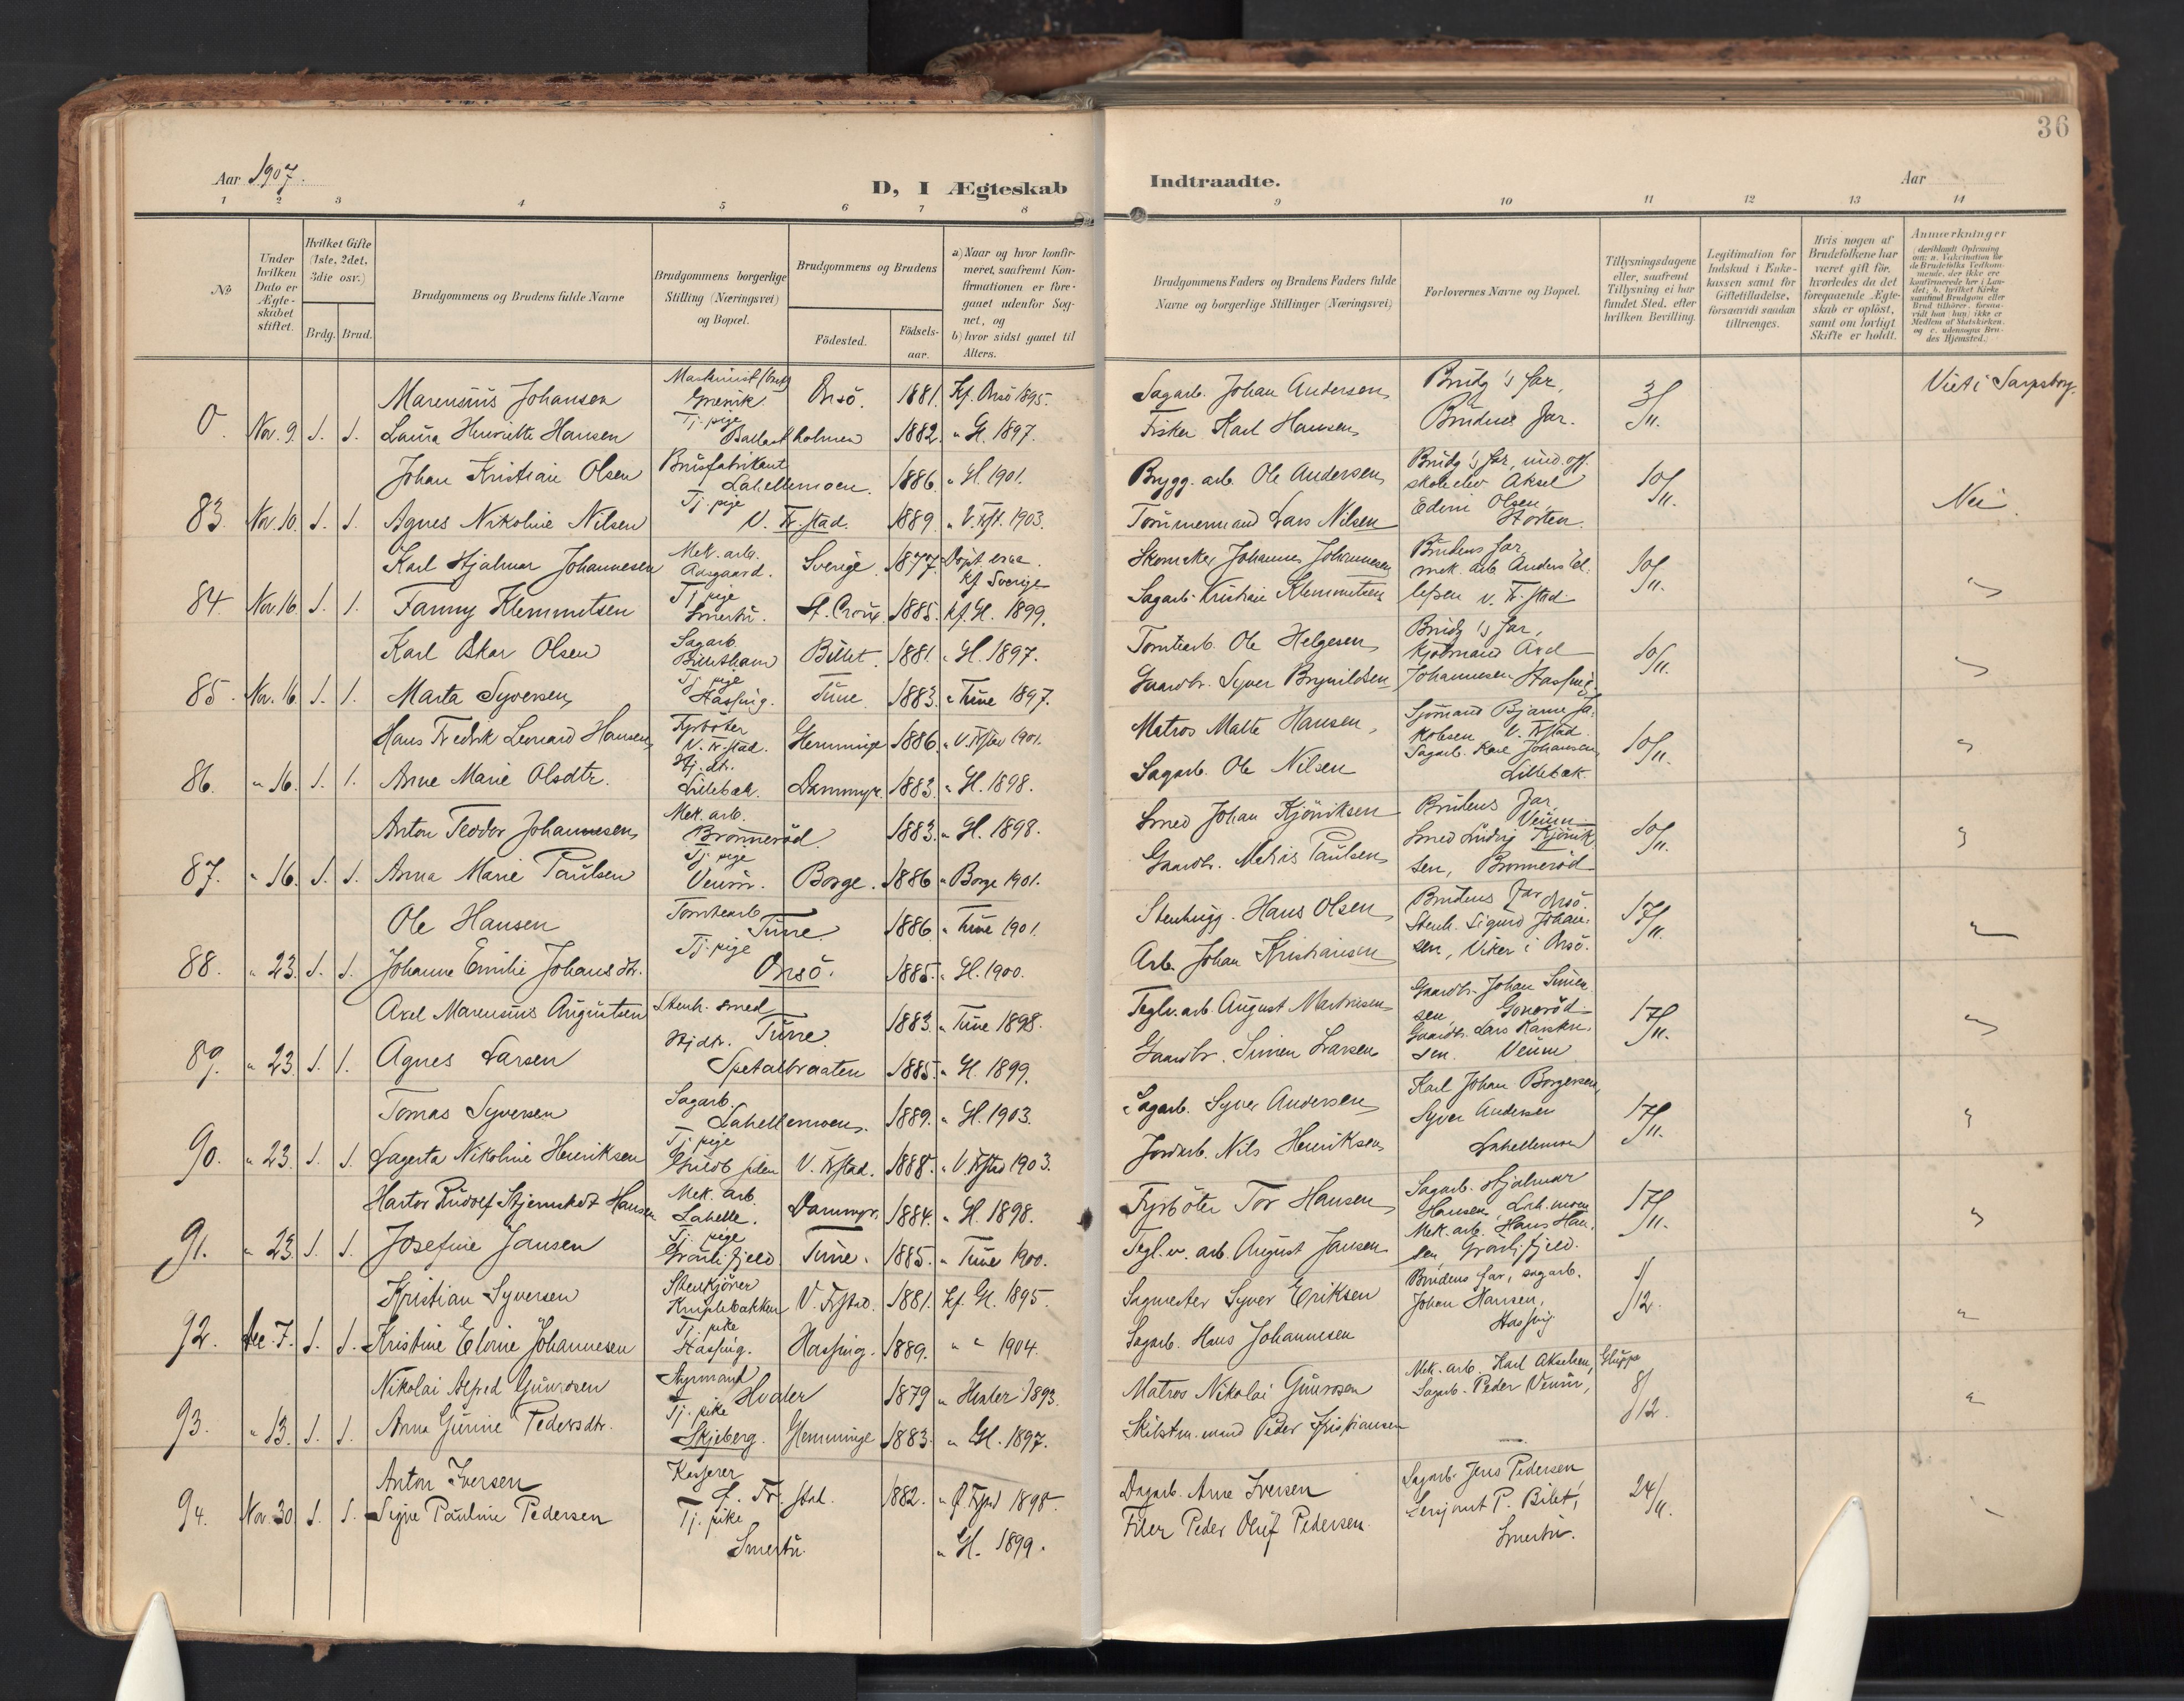 36
Aar 1907.
D, I Ægteskab
Indtraadte.
Aar
1 2 3 4 5 6 7 8 9 10 11 12 13 14
No
Under hvilken Dato er Ægteskabet stiftet.
Hvilket Gifte (1ste, 2det, 3die osv.)
Brdg. Brud.
Brudgommens og Brudens fulde Navne
Brudgommens borgerlige Stilling (Næringsvei) og Bopæl.
Brudgommens og Brudens
Fødested.
Fødselsaar.
a) Naar og hvor konfirmeret, saafremt Konfirmationen er foregaaet udenfor Sognet, og
b) hvor sidst gaaet til Alters.
Brudgommens Faders og Brudens Faders fulde Navne og borgerlige Stillinger (Næringsvei)
Forlovernes Navne og Bopæl.
Tillysningsdagene eller, saafremt Tillysning ei har fundet Sted, efter hvilken Bevilling.
Legitimation for Indskud i Enkekassen samt for Giftetilladelse, forsaavidt saadan tiltrænges.
Hvis nogen af Brudefolkene har været gift før, hvorledes da det foregaaende Ægteskab er opløst, samt om lovligt Skifte er holdt.
Anmærkninger (deriblandt Oplysning om: a. Vakcination for de Brudefolks Vedkommende, der ikke ere konfirmerede her i Landet; b. hvilket Kirkesamfund Brudgom eller Brud tilhører, forsaavidt han (hun) ikke er Medlem af Statskirken, og c. udensogns Brudes Hjemsted.)
Marensius Johansen Maskinist Græsvik Onsö. 1881. Kf. Onsö 1895. Sagarb. Johan Andersen, Brudg's far, 3/11. Viet i Sarpsborg.
0. Nov. 9. 1. 1. Laura Henriette Hansen Tj. pige Ballastholmen 1882. " Gl. 1897. Fisker Karl Hansen, Brudens far.
Johan Kristian Olsen Brusfabrikant Lahellemoen. 1886. " Gl. 1901. Brygg. arb. Ole Andersen, Brudg's far, und. off. skoleelev Aksel 10/11.
83. Nov. 10. 1. 1. Agnes Nikoline Nilsen Tj. pige V. Fr.stad. 1889. " V. Frst. 1903. Tømmermand Lars Nilsen Edvin Olsen, Horten. Nei.
Karl Hjalmar Johannesen Mek. arb. Aasgaard. Sverige. 1877. Döpt kf Sverige Skomaker Johannes Johannesen Brudens far, mek. arb. Anders 10/11.
84. Nov. 16. 1. 1. Fanny Klemmetsen Tj. pige Smertu. St. Croix. 1885. kf. Gl. 1899. Sagarb. Kristian Klemmetsen V. Fr.stad "
Karl Oskar Olsen Sagarb. Billet. 1881. " Gl. 1897. Tomtearb. Ole Helgesen, Brudg's far, kjöbmand Axel 10/11.
85. Nov. 16. 1. 1. Marta Syversen Tj. pige Hassing. Tune 1883. " Tune 1897. Gaardbr. Syver Brynildsen Johannesen Hassing "
Hans Fredrik Leonard Hansen Fyrböter V. Fr.stad. Hemminge 1886. " V. Frstad 1901. Matros Malte Hansen, Sjömand Bjarne Jakobsen V. Frstad. 10/11.
86. " 16. 1. 1. Anne Marie Olsdtr. Hj. dtr. Lillebæk. Dammyr. 1883. " Gl. 1898. Sagarb. Ole Nilsen Sagarb. Karl Johansen Lillebæk. "
Anton Teodor Johannesen, Mek. arb. Brönneröd. 1883. " Gl. 1898. Smed Johan Kjöniksen Brudens far, Veum 10/11.
87. " 16. 1. 1. Anna Marie Paulsen Tj. pige Veum. Borge. 1886 " Borge 1901. Gaardbr. Matias Paulsen, Smed Ludvig Kjöniksen, Brönneröd "
Ole Hansen Tomtearb. Tune. 1886. " Tune 1901. Stenhugg. Hans Olsen, Brudens far Onsö. 17/11.
88. " 23. 1. 1. Johanne Emilie Johansdtr. Tj. pige Onsö. 1885. " Gl. 1900. Arb. Johan Kristiansen Stenh. Sigurd Johansen, Viker i Onsö. "
Axel Marensius Augustsen Stenh. smed Tune. 1883. " Tune 1898. Teglv. arb. August Martinsen Gaardbr. Johan Simensen 17/11.
89. " 23. 1. 1. Agnes Larsen Hj. dtr. Spetalbraaten 1885. " Gl. 1899. Gaardbr. Simen Larsen Gaardbr. Lars Karsten Veum "
Tomas Syversen Sagarb. Lahellemoen. 1889. " Gl. 1903. Sagarb. Syver Andersen Karl Johan Borgersen, 17/11.
90. " 23. 1. 1. Lagerta Nikoline Henriksen Tj. pige V. Frstad. 1888. " V. Frstad 1903. Jordarb. Nils Henriksen Syver Andersen Lahellemoen "
Rudolf Stjernstedt Hansen Mek. arb. Lahelle. Dammyr. 1884. " Gl. 1898. Fyrböter Tor Hansen, Sagarb. Hjalmar Hansen, Lah.moen 17/11.
91. " 23. 1. 1. Josefine Jansen Tj. pige Graalifjeld Tune. 1885. " Tune 1900. Tegl. v. arb. August Jansen Mek. arb. Hans Hansen, Graalifjeld. "
Kristian Syversen Stenkjörer Kniplebakken V. Frstad. 1881. kf. Gl. 1895. Sagmester Syver Eriksen Brudens far, sagarb. 1/12.
92. Dec. 7. 1. 1. Kristine Elvine Johannesen Tj. pike Hassing. Hassing. 1889. " " 1904. Sagarb. Hans Johannesen Johan Hansen, Hassing "
Nikolai Alfred Gunrosen Styrmand Hvaler 1879 " Hvaler 1893. Matros Nikolai Gunrosen Mek. arb. Karl Akselsen, Glupp 8/12.
93. " 13. 1. 1. Anna Gurine Pedersdtr. Tj. pike Skjeberg. Hemminge 1883. " Gl. 1897. Skilstm. mand Peder Kristiansen Sagarb. Peder Veum, "
Anton Iversen Kasserer Fr. stad. 1882. Frstad 1898. Dagarb. Arne Iversen Sagarb. Jens Pedersen 24/11.
94. Nov. 30. 1. 1. Signe Pauline Pedersen Tj. pike Smertu. " Gl. 1899. Filer Peder Oluf Pedersen. Sersjant P. Bilet, Smertu. "